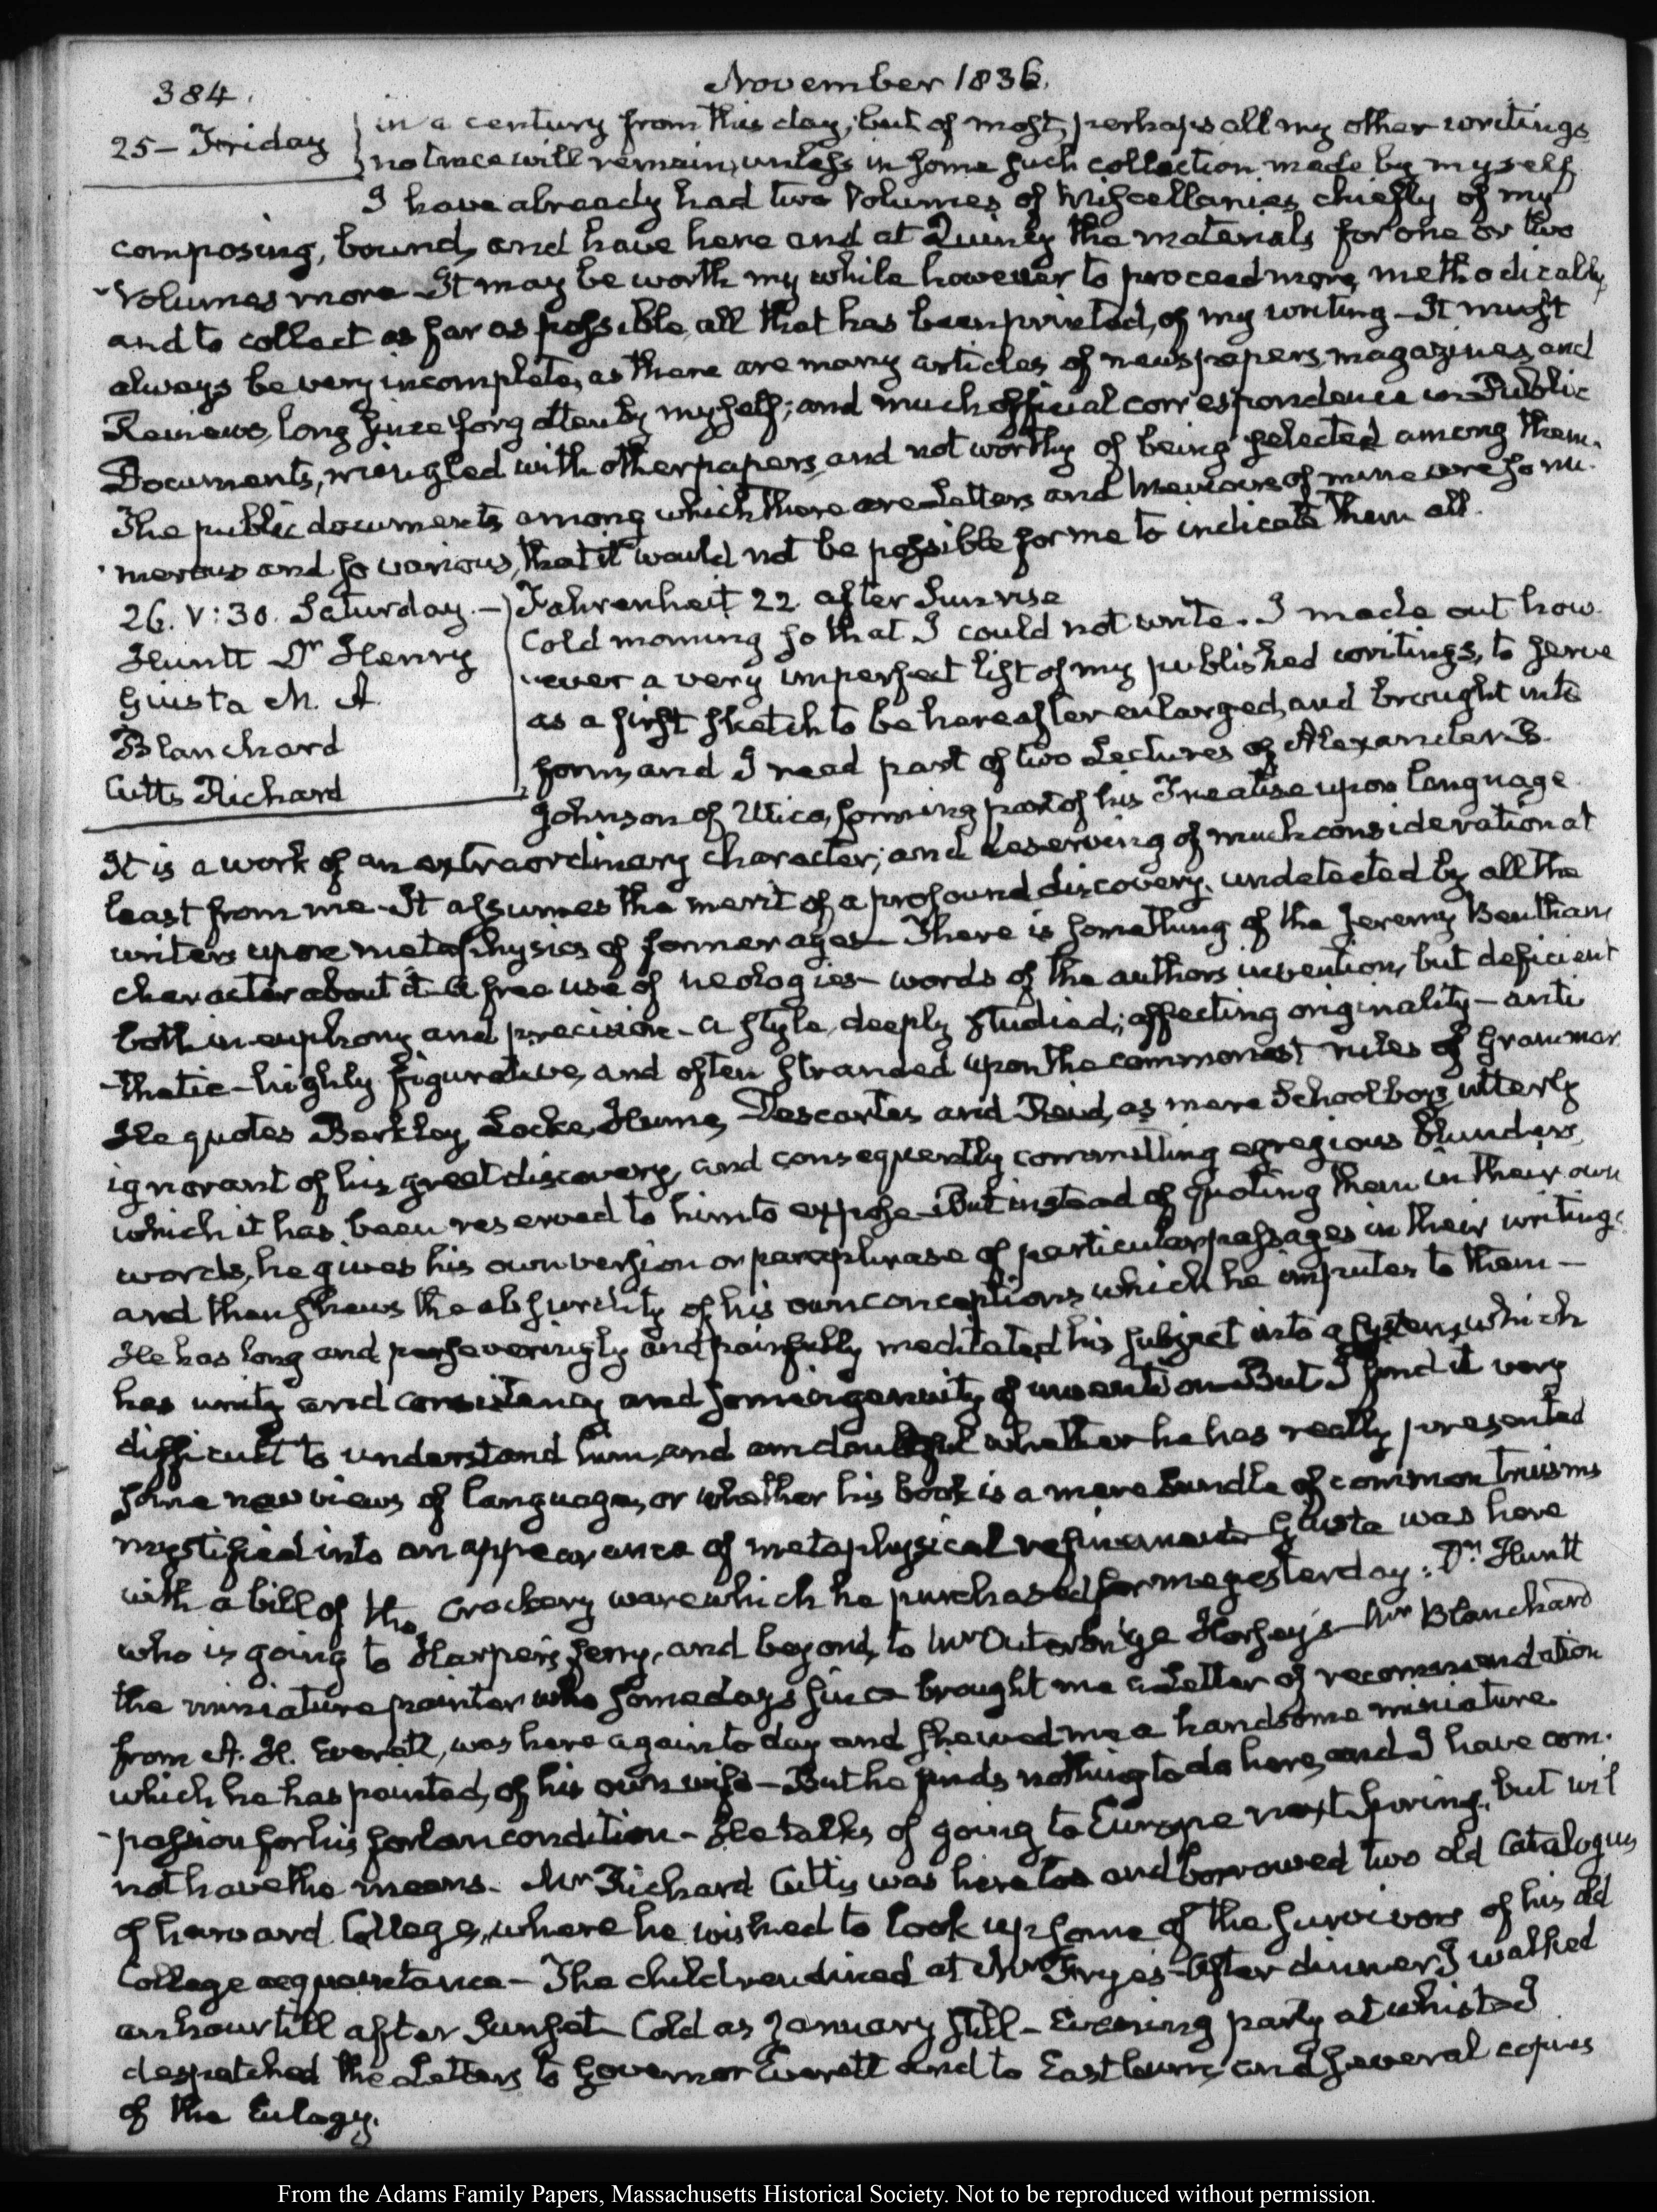 384.
November 1836.
25 - Friday
in a century from this day; but of most, perhaps all my other writings
no trace will remain, unless in some such collection made by myself
I have already had two Volumes of Miscellanies chiefly of my
composing, bound, and have here and at Quincy the materials for one or two
Volumes more - It may be worth my while however to proceed more methodically,
and to collect as far as possible, all that has been printed, of my writing - It must
always be very incomplete, as there are many articles of newspapers, magazines, and
Reviews, long since forgotten by myself; and much official correspondence in Public
Documents, mingled with other papers, and not worthy of being selected among them.
The public documents among which there are Letters and Memoirs of mine are so nu-
merous and so various, that it would not be possible for me to indicate them all.
26. V:30. Saturday. -
Huntt Dr Henry
Giusta M. A.
Blanchard
Cutts Richard
Fahrenheit 22 after Sunrise
Cold morning so that I could not write. I made out how-
ever a very imperfect list of my published writings, to serve
as a first sketch to be hereafter enlarged, and brought into
form, and I read part of two Lectures of Alexander B.
Johnson of Utica, forming part of his Treatise upon language
It is a work of an extraordinary character; and deserving of much consideration at
least from me - It assumes the merit of a profound discovery, undetected by all the
writers upon metaphysics of former ages - There is something of the Jeremy Bentham
character about it - a free use of neologies - words of the authors invention, but deficient
both in euphony and precision - a style, deeply studied; affecting originality - anti
-thetic - highly figurative, and often stranded upon the commonest rules of Grammar
He quotes Berkley, Locke, Hume, Descartes and Reid, as mere School boys, utterly
ignorant of his great discovery, and consequently committing egregious blunders,
which it has been reserved to him to expose - But instead of quoting them in their own
words, he gives his own version or paraphrase of particular passages in their writings
and then shews the absurdity of his own conceptions which he imputes to them -
He has long and perseveringly and painfully meditated his subject into a system, which
has unity and consistency and some ingenuity of invention - But I find it very
difficult to understand him, and am doubtful whether he has really presented
some new views of language, or whether his book is a mere bundle of common truisms
mystified into an appearance of metaphysical refinement - Giusta was here
with a bill of the crockery ware which he purchased for me yesterday: Dr Huntt
who is going to Harper's ferry, and beyond, to Mr Outerbridge Horsey's - Mr Blanchard
the miniature painter who some days since brought me a Letter of recommendation
from A. H. Everett, was here again to day and shewed me a handsome miniature
which he has painted, of his own wife - But he finds nothing to do here, and I have com-
-passion for his forlorn condition - He talks of going to Europe next Spring, but will
not have the means - Mr Richard Cutts was here too and borrowed two old Catalogues
of harvard College, where he wished to look up some of the survivors of his old
College acquaintance - The children dined at Mrs Frye's - After dinner I walked
an hour till after Sunset - Cold as January still - Evening party at whist - I
despatched the Letters to Governor Everett and to Eastburn; and several copies
of the Eulogy.
From the Adams Family Papers, Massachusetts Historical Society. Not to be reproduced without permission.